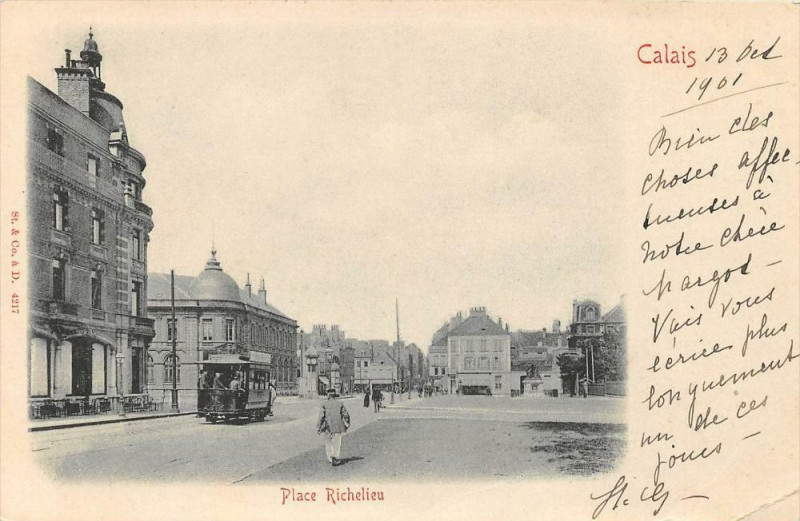 Calais 13 Oct
1901
Bien des
choses affec-
tueuses à
notre chère
Margot —
Vais vous
écrire plus
longuement
un de ces
jours —
St. & Co. à D. 4217
Place Richelieu